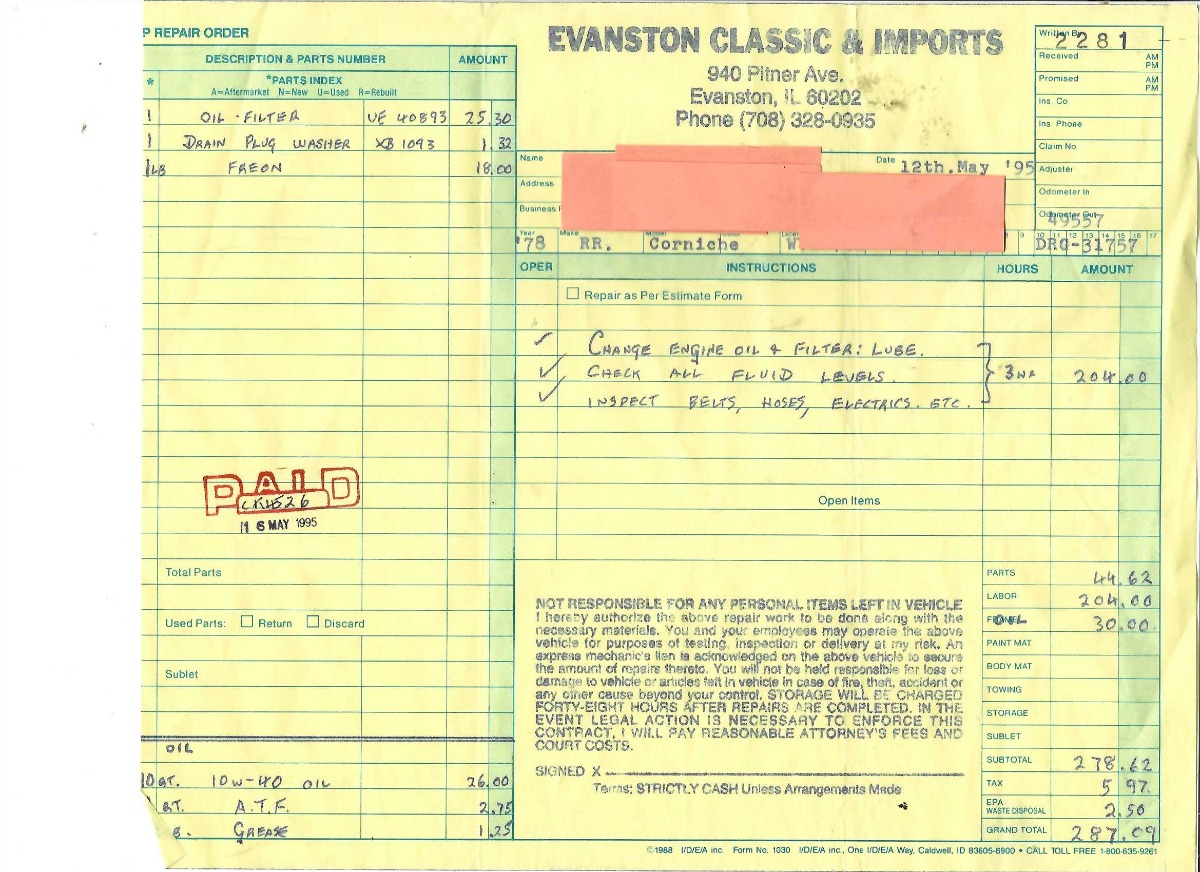 P REPAIR ORDER
DESCRIPTION & PARTS NUMBER AMOUNT
* *PARTS INDEX
A=Aftermarket N=New U=Used R=Rebuilt
1 OIL-FILTER UE 40893 25.30
1 DRAIN PLUG WASHER XB 1093 1.32
1LB FREON 18.00
PAID
CK4526
16 MAY 1995
Total Parts
Used Parts: Return Discard
Sublet
OIL
10 QT. 10W-40 OIL 26.00
QT. A.T.F. 2.75
B. GREASE 1.25
EVANSTON CLASSIC & IMPORTS
940 Pitner Ave.
Evanston, IL 60202
Phone (708) 328-0935
Written By 2281
Received AM PM
Promised AM PM
Ins. Co
Ins. Phone
Claim No.
Adjuster
Odometer In
Odometer Out
49557
Name Date 12th.May '95
Address
Business
Year Make Model
9 10 11 12 13 14 15 16 17
'78 RR. Corniche W DRG-31757
OPER INSTRUCTIONS HOURS AMOUNT
Repair as Per Estimate Form
CHANGE ENGINE OIL & FILTER: LUBE.
CHECK ALL FLUID LEVELS. 3 HR 204.00
INSPECT BELTS, HOSES, ELECTRICS. ETC.
Open Items
NOT RESPONSIBLE FOR ANY PERSONAL ITEMS LEFT IN VEHICLE
I hereby authorize the above repair work to be done along with the
necessary materials. You and your employees may operate the above
vehicle for purposes of testing, inspection or delivery at my risk. An
express mechanic's lien is acknowledged on the above vehicle to secure
the amount of repairs thereto. You will not be held responsible for loss or
damage to vehicle or articles left in vehicle in case of fire, theft, accident or
any other cause beyond your control. STORAGE WILL BE CHARGED
FORTY-EIGHT HOURS AFTER REPAIRS ARE COMPLETED. IN THE
EVENT LEGAL ACTION IS NECESSARY TO ENFORCE THIS
CONTRACT, I WILL PAY REASONABLE ATTORNEY'S FEES AND
COURT COSTS.
SIGNED X
Terms: STRICTLY CASH Unless Arrangements Made
PARTS 44.62
LABOR 204.00
OIL 30.00
PAINT MAT
BODY MAT
TOWING
STORAGE
SUBLET
SUBTOTAL 278.62
TAX 5 97
EPA WASTE DISPOSAL 2.50
GRAND TOTAL 287.09
©1988 I/D/E/A inc. Form No. 1030 I/D/E/A inc., One I/D/E/A Way, Caldwell, ID 83605-6900 • CALL TOLL FREE 1-800-635-9261